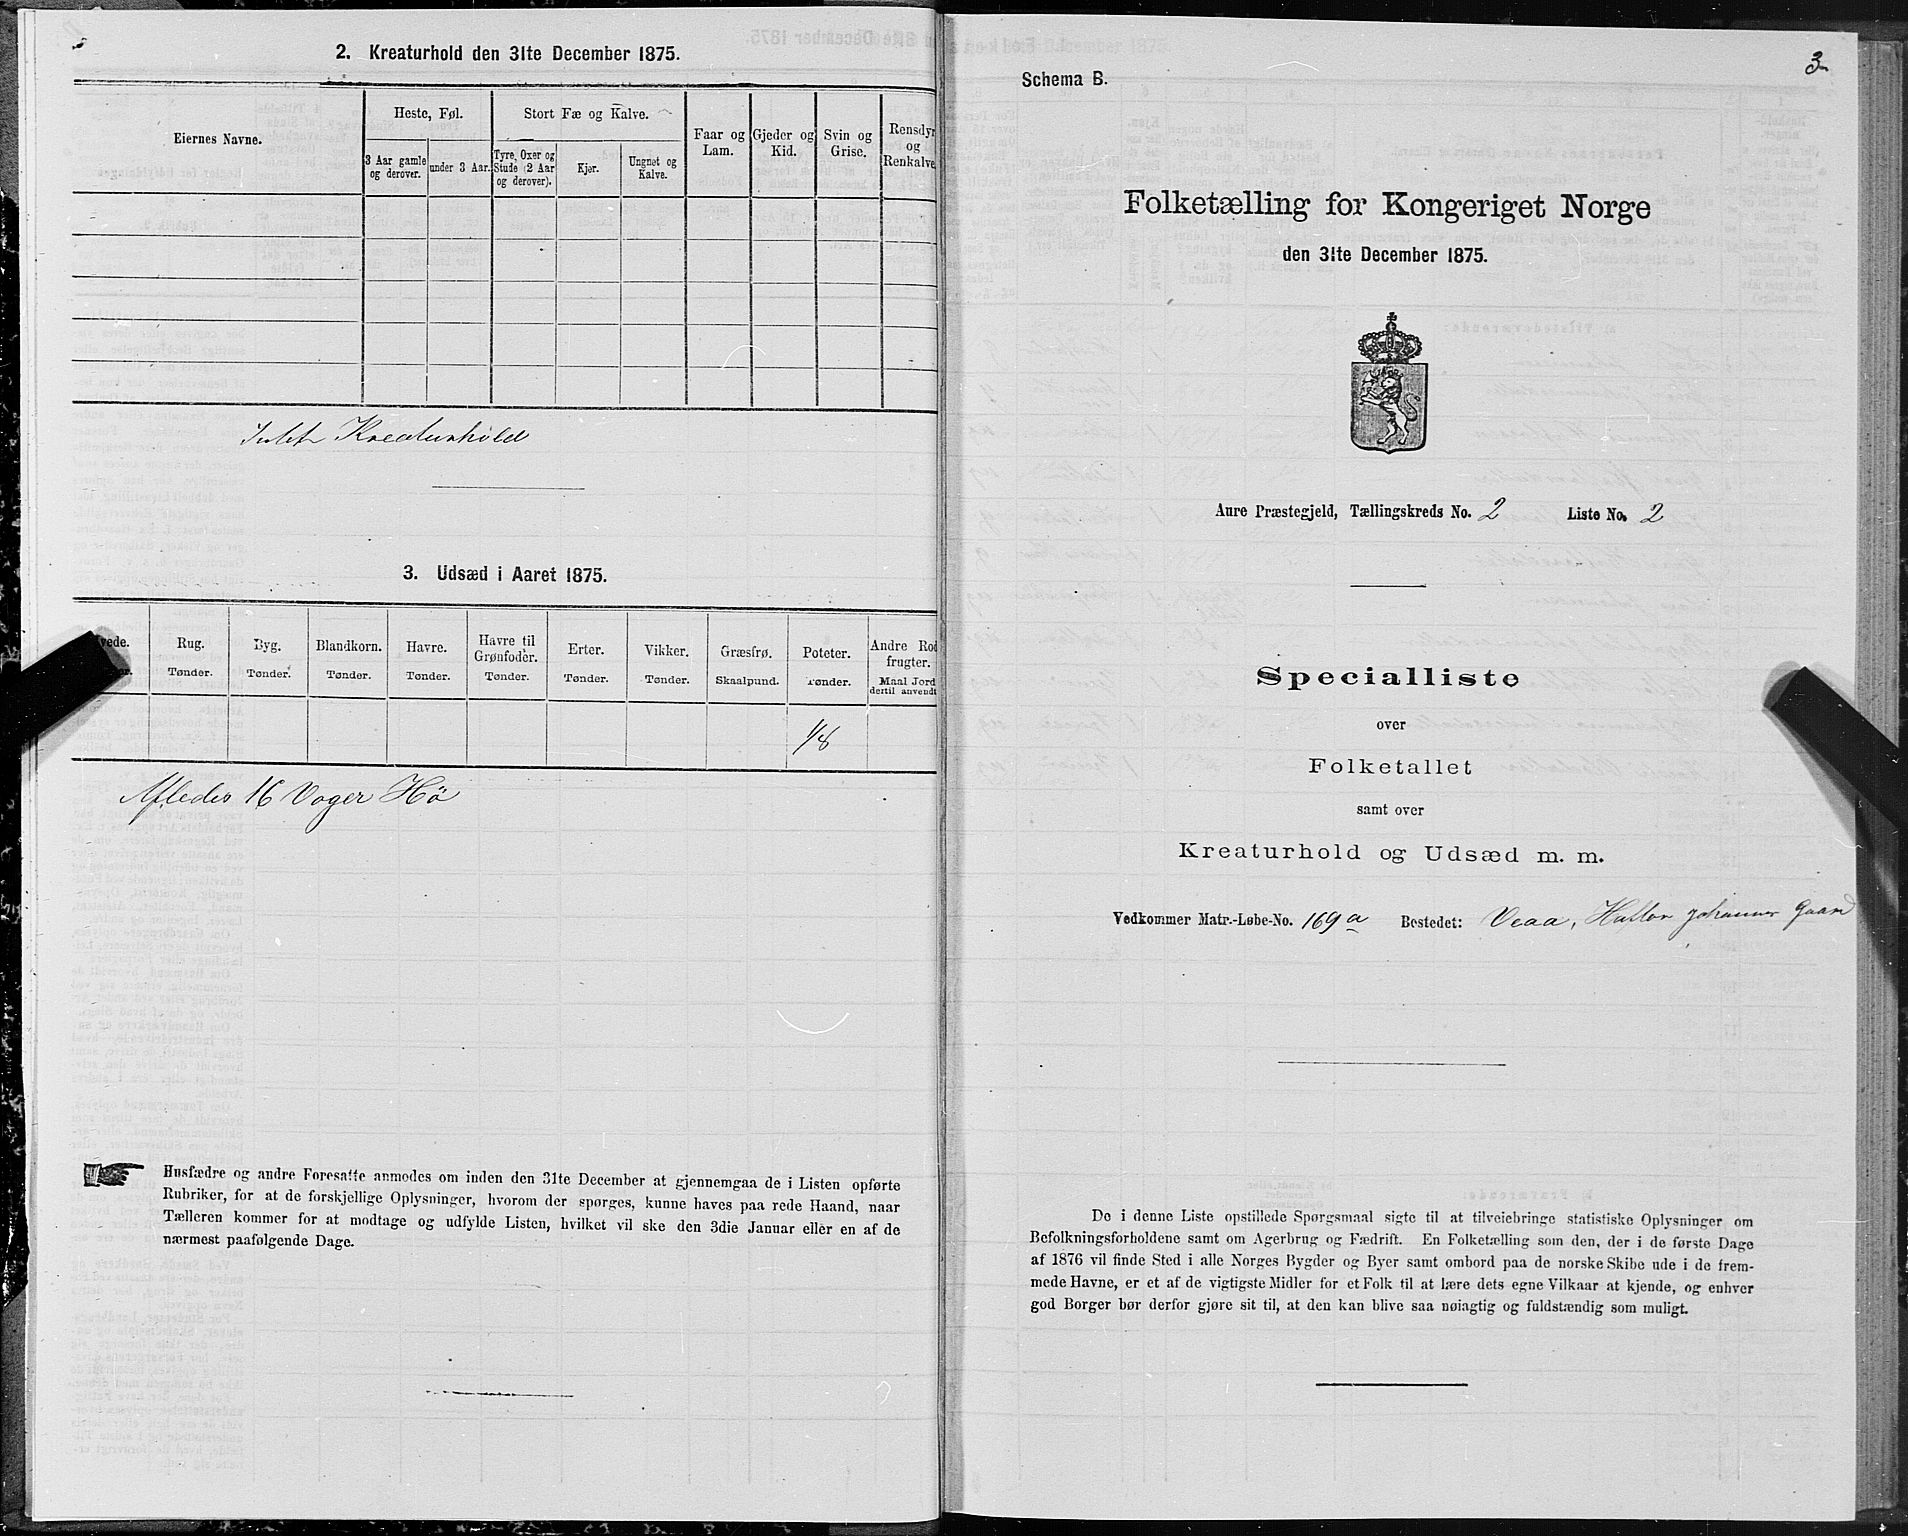 2. Kreaturhold den 31te December 1875.
Eiernes Navne.
Heste, Føl.
Stort Fæ og Kalve.
Faar og Lam.
Gjeder og Kid.
Svin og Grise.
Rensdyr og Renkalve.
3 Aar gamle og derover.
under 3 Aar.
Tyre, Oxer og Stude (2 Aar og derover).
Kjør.
Ungnøt og Kalve.
Intet Kreaturhold
3. Udsæd i Aaret 1875.
Rug.
Byg.
Blandkorn.
Havre.
Havre til Grønfoder.
Erter.
Vikker.
Græsfrø.
Poteter.
Andre Rodfrugter.
Tønder.
Tønder.
Tønder.
Tønder.
Tønder.
Tønder.
Tønder.
Skaalpund.
Tønder.
Maal Jord dertil anvendt
1/8
Afledes 16 Voger Hö
Husfædre og andre Foresatte anmodes om inden den 31te December at gjennemgaa de i Listen opførte
Rubriker, for at de forskjellige Oplysninger, hvorom der spørges, kunne haves paa rede Haand, naar
Tælleren kommer for at modtage og udfylde Listen, hvilket vil ske den 3die Januar eller en af de
nærmest paafølgende Dage.
3
Schema B.
Folketælling for Kongeriget Norge
den 31te December 1875.
Aure Præstegjeld, Tællingskreds No. 2 Liste No. 2
Specialliste
over
Folketallet
samt over
Kreaturhold og Udsæd m. m.
Vedkommer Matr.-Løbe-No. 169a Bestedet: Veaa, Hallor Johannes Gaard
De i denne Liste opstillede Spørgsmaal sigte til at tilveiebringe statistiske Oplysninger om
Befolkningsforholdene samt om Agerbrug og Fædrift. En Folketælling som den, der i de første Dage
af 1876 vil finde Sted i alle Norges Bygder og Byer samt ombord paa de norske Skibe ude i de frem-
mede Havne, er et af de vigtigste Midler for et Folk til at lære dets egne Vilkaar at kjende, og enhver
god Borger bør derfor gjøre sit til, at den kan blive saa nøiagtig og fuldstændig som muligt.